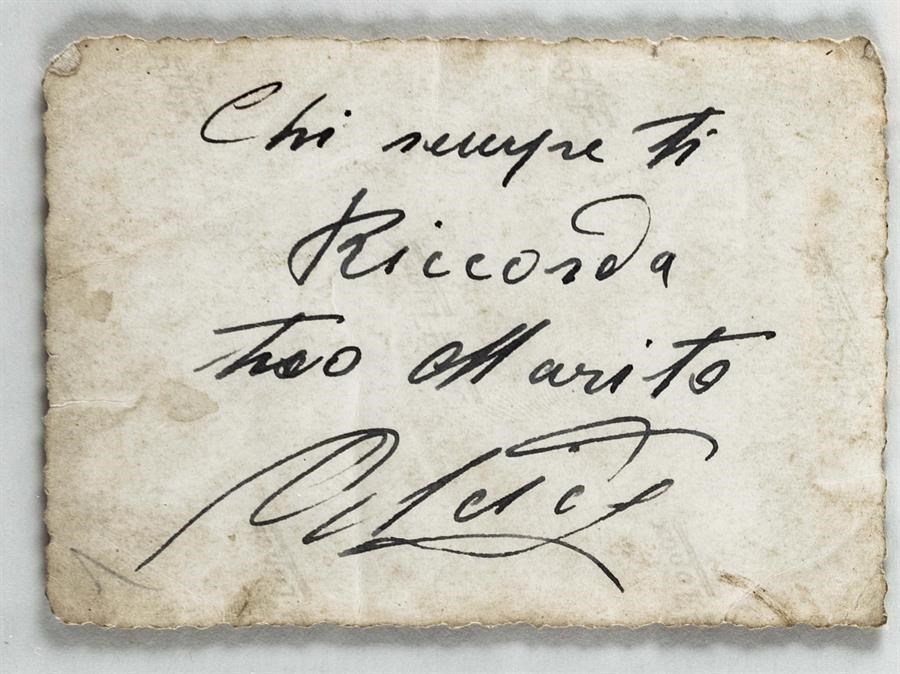 Chi sempre ti
Riccorda
tuo Marito